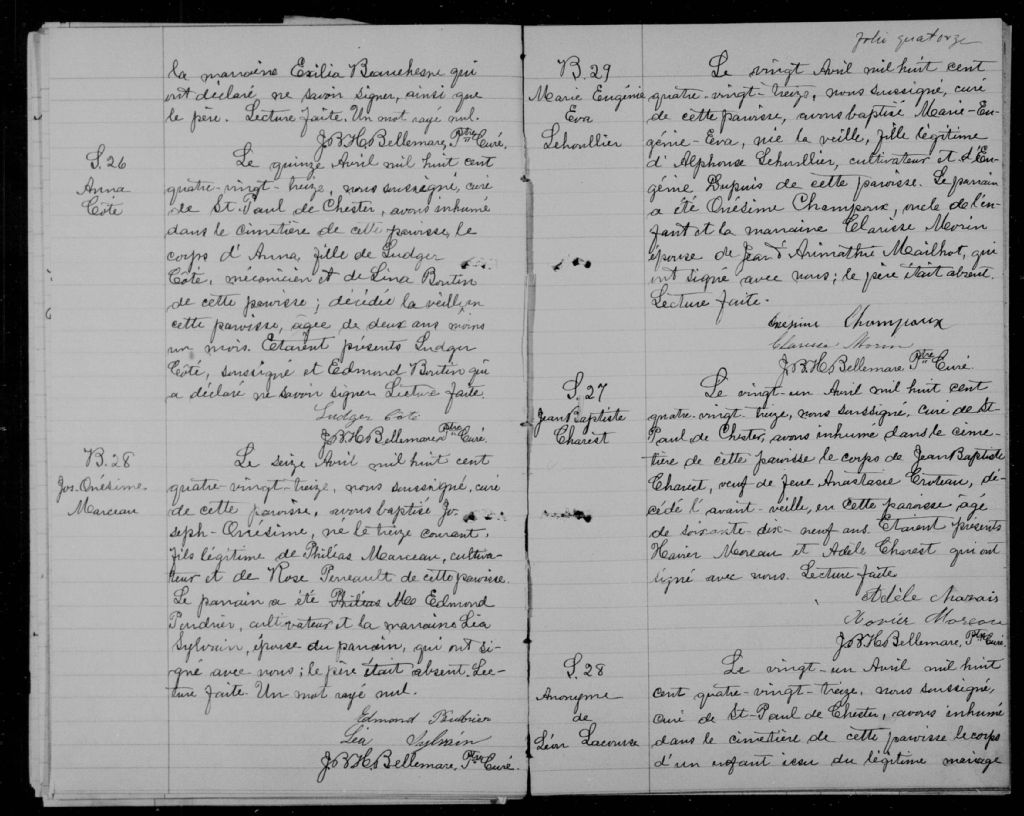 la marraine Exilia Beauchesne qui
ont déclaré ne savoir signer, ainsi que
le père. Lecture faite. Un mot rayé nul.
J.B.H. Bellemare, Ptre Curé.
S. 26
Anna
Côté
Le quinze Avril mil huit cent
quatre-vingt-treize, nous soussigné, curé
de St. Paul de Chester, avons inhumé
dans le cimetière de cette paroisse, le
corps d'Anna, fille de Ludger
Côté, mécanicien et de Lina Boutin
de cette paroisse; décédée la veille, en
cette paroisse, âgée de deux ans moins
un mois. Etaient présents Ludger
Côté, soussigné et Edmond Boutin qui
a déclaré ne savoir signer. Lecture faite.
Ludger Coté
J.B.H. Bellemare, Ptre Curé.
B. 28
Jos. Onésime
Marceau
Le seize Avril mil huit cent
quatre-vingt-treize, nous soussigné, curé
de cette paroisse, avons baptisé Jo-
seph-Onésime, né le treize courant,
fils légitime de Philias Marceau, cultiva-
teur et de Rose Perreault de cette paroisse.
Le parrain a été Philias Edmond
cultivateur et la marraine Léa
Sylvain, épouse du parrain, qui ont si-
gné avec nous; le père était absent. Lec-
ture faite. Un mot rayé nul.
Edmond
Léa Sylvain
J.B.H. Bellemare, Ptre Curé.
folio quatorze
B. 29
Marie Eugénie
Eva
Lehoullier
Le vingt Avril mil huit cent
quatre-vingt-treize, nous soussigné, curé
de cette paroisse, avons baptisé Marie-Eu-
génie-Eva, née la veille, fille légitime
d'Alphonse Lehoullier, cultivateur et d'Eu-
génie Dupuis de cette paroisse. Le parrain
a été Onésime Champoux, oncle de l'en-
fant et la marraine Clarisse Morin
épouse de Jean d'Arimathie Mailhot, qui
ont signé avec nous; le père était absent.
Lecture faite.
Onesime Champoux
Clarisse Morin
J.B.H. Bellemare, Ptre Curé.
S. 27
Jean Baptiste
Charest
Le vingt-un Avril mil huit cent
quatre-vingt-treize, nous soussigné, curé de St-
Paul de Chester, avons inhumé dans le cime-
tière de cette paroisse le corps de Jean Baptiste
Charest, veuf de feue Anastasie Croteau, dé-
cédé l'avant-veille, en cette paroisse, âgé
de soixante-dix-neuf ans. Etaient présents
Xavier Moreau et Adèle Charest qui ont
signé avec nous. Lecture faite.
Adèle
Xavier Moreau
J.B.H. Bellemare, Ptre Curé.
S. 28
Anonyme
de
Léon Lacourse
Le vingt-un Avril mil huit
cent quatre-vingt-treize, nous soussigné,
curé de St-Paul de Chester, avons inhumé
dans le cimetière de cette paroisse le corps
d'un enfant issu du légitime mariage